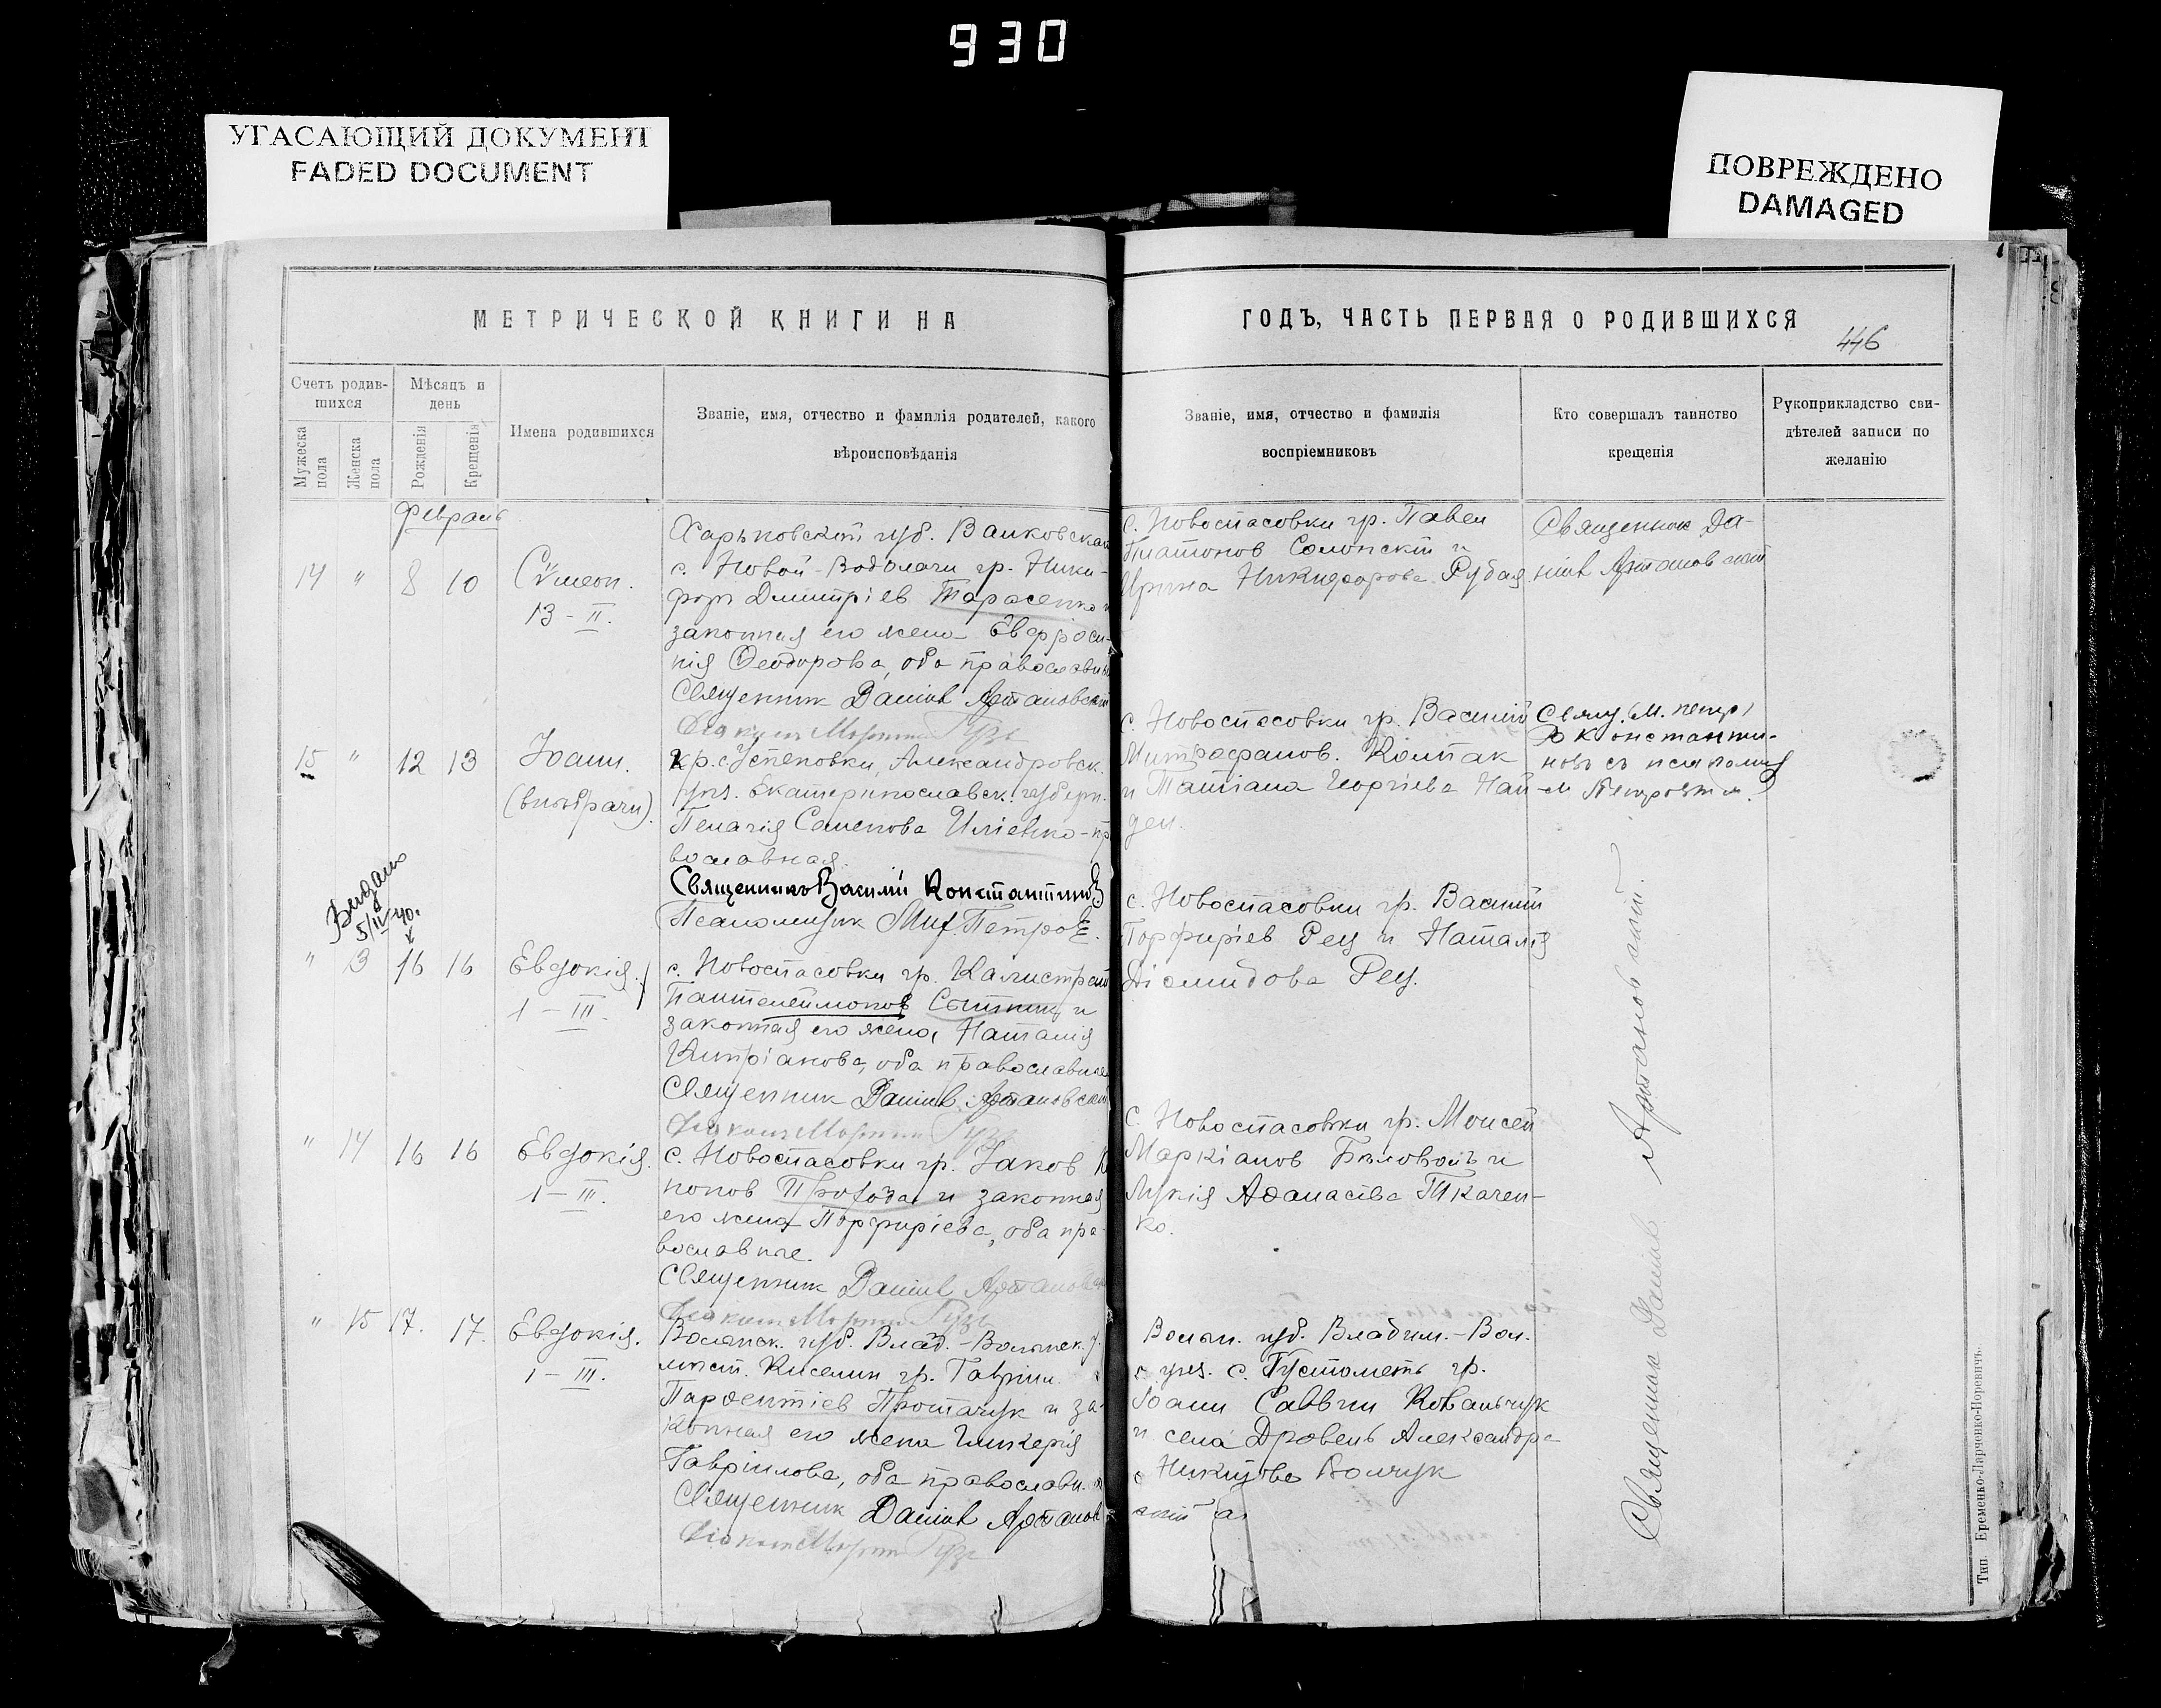 930
УГАСАЮЩИЙ ДОКУМЕНТ
FADED DOCUMENT
ПОВРЕЖДЕНО
DAMAGED
МЕТРИЧЕСКОЙ КНИГИ НА
ГОДЪ, ЧАСТЬ ПЕРВАЯ О РОДИВШИХСЯ
446
Счетъ родив-
шихся
Мужеска
пола
Женска
пола
Мѣсяцъ и
день
Рожденія
Крещенія
Имена родившихся
Званіе, имя, отчество и фамилія родителей, какого
вѣроисповѣданія
Званіе, имя, отчество и фамилія
воспріемниковъ
Кто совершалъ таинство
крещенія
Рукоприкладство сви-
дѣтелей записи по
желанію
Февраль
14 " 8 10
Сѵмеон.
13 - II.
Харьковской губ. Валковскаго
с. Новой-Водолаги гр. Ники-
фор Дмитріев Тарасенко и
законная его жена Евфроси-
нія Феодорова, оба православные
Священник Даніил Артановскій
с. Новоспасовки гр. Павел
Платонов Солонскій и
Ирина Никифорова Рубан
Священник Да-
ніил Артановскій
15 " 12 13
Іоанн.
(внѣбрачн).
кр. с. Успеновки, Александровск.
уѣз. Екатеринославск. губерн.
Пелагія Семенова Иліенко - пр
вославная.
Священник Василій Константинов
Псаломщик Мит. Петров.
с. Новоспасовки гр. Василий
Митрофанов. Колпак
и Татіана Георгіева Най
ден.
Свящ. (М. петр)
Константи-
нов съ псаломщ
-м Петровым.
Видано
5/II 40.
" 13 16 16
Евдокія.
1 - III.
с. Новоспасовки гр. Калистрат
Пантелеймонов Сытник и
законная его жена, Наталія
Кипріанова, оба православные
Священник Даніил Артановскій
с. Новоспасовки гр. Василий
Порфиріев Рец и Наталія
Діомидова Рец.
" 14 16 16
Евдокія.
1 - III.
с. Новоспасовки гр. Іаков
нонов Прохода и законная
его жена Порфиріева, оба пра-
вославные.
Священник Даніил Артановск
с. Новоспасовки гр. Моисей
Маркіанов Бѣловол и
Лукія Афанасіева Ткачен-
ко.
" 15 17. 17.
Евдокія.
1 - III.
Волянск. губ. Влад. - Волынск. у.
мѣст. Киселин гр. Гавриил
Парфентіев Протачук и за-
конная его жена Гликерія
Гавріилова, оба православн.
Священник Даніил Артанов
скій
Волын. губ. Владим. - Вол.
уѣз. с. Густометь гр.
Іоанн Саввин Ковальчук
и села Дровень Александра
Никитова Волчук
Священник Даніил Артановскій.
Тип. Еременко-Ларченко-Норевичъ.